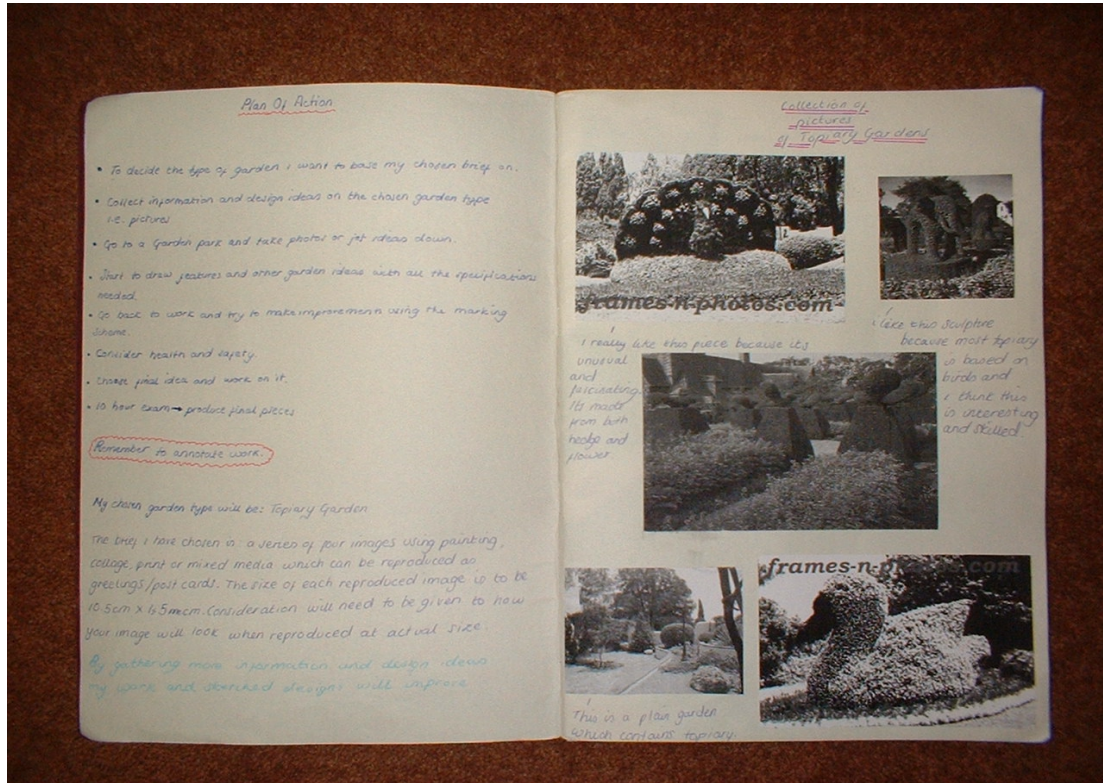 Plan Of Action
• To decide the type of garden i want to base my chosen brief on.
• Collect information and design ideas on the chosen garden type
i.e. pictures
• Go to a Garden park and take photos or jot ideas down.
• Start to draw features and other garden ideas with all the specifications
needed.
• Go back to work and try to make improvements using the marking
scheme.
• Consider health and safety.
• Choose final idea and work on it.
• 10 hour exam → produce final pieces
Remember to annotate work.
My chosen garden type will be: Topiary Garden
The brief i have chosen is: a series of four images using painting,
collage, print or mixed media which can be reproduced as
greetings/post cards. The size of each reproduced image is to be
10.5cm x cm. Consideration will need to be given to how
your image will look when reproduced at actual size.
By gathering more information and design ideas
my work and sketched designs will improve
Collection of
pictures
of Topiary Gardens
frames-n-photos.com
i really like this piece because its
unusual
and
fascinating.
Its made
from both
hedge and
flower.
i like this sculpture
because most topiary
is based on
birds and
i think this
is interesting
and skilled
frames-n-photos.com
This is a plain garden
which contains topiary.